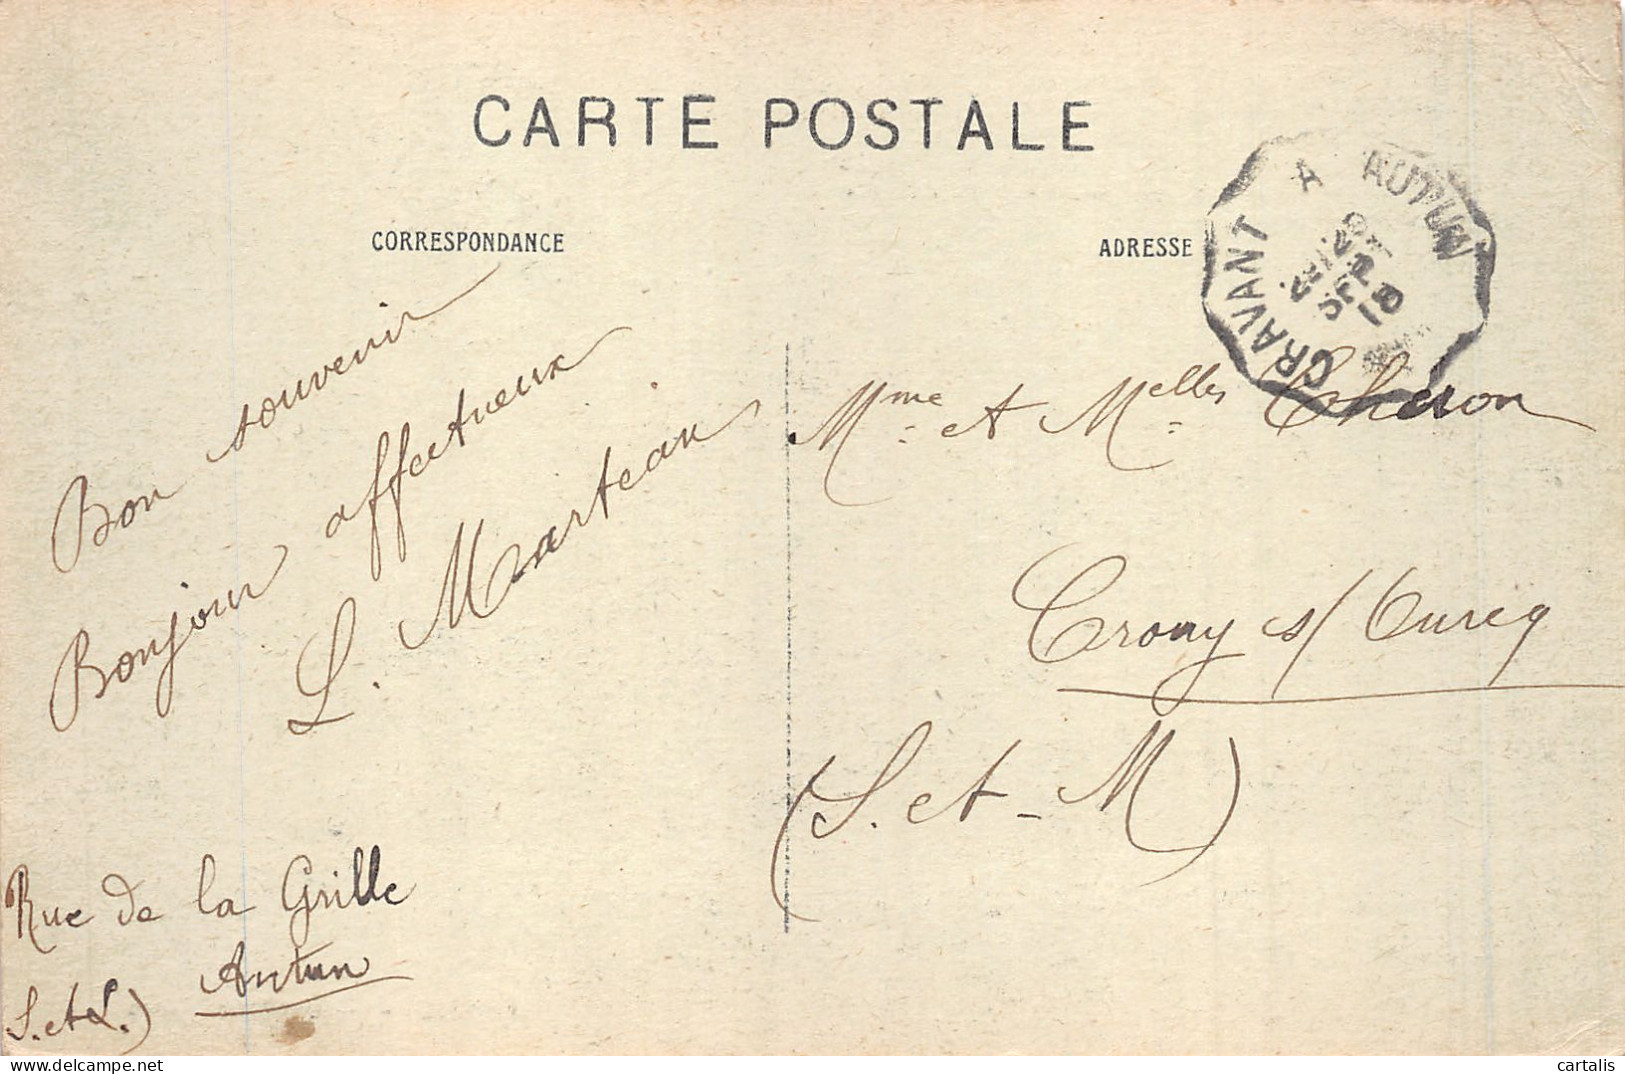 CARTE POSTALE
CORRESPONDANCE
ADRESSE
CRAVANT A AUTUN
18
Bon souvenir
Bonjour affectueux
L. Marteau
Rue de la Grille
Autun
S. et L.)
Mme et Melles Cheron
Crouy s/ Ourcq
(S. et - M)
cartalis